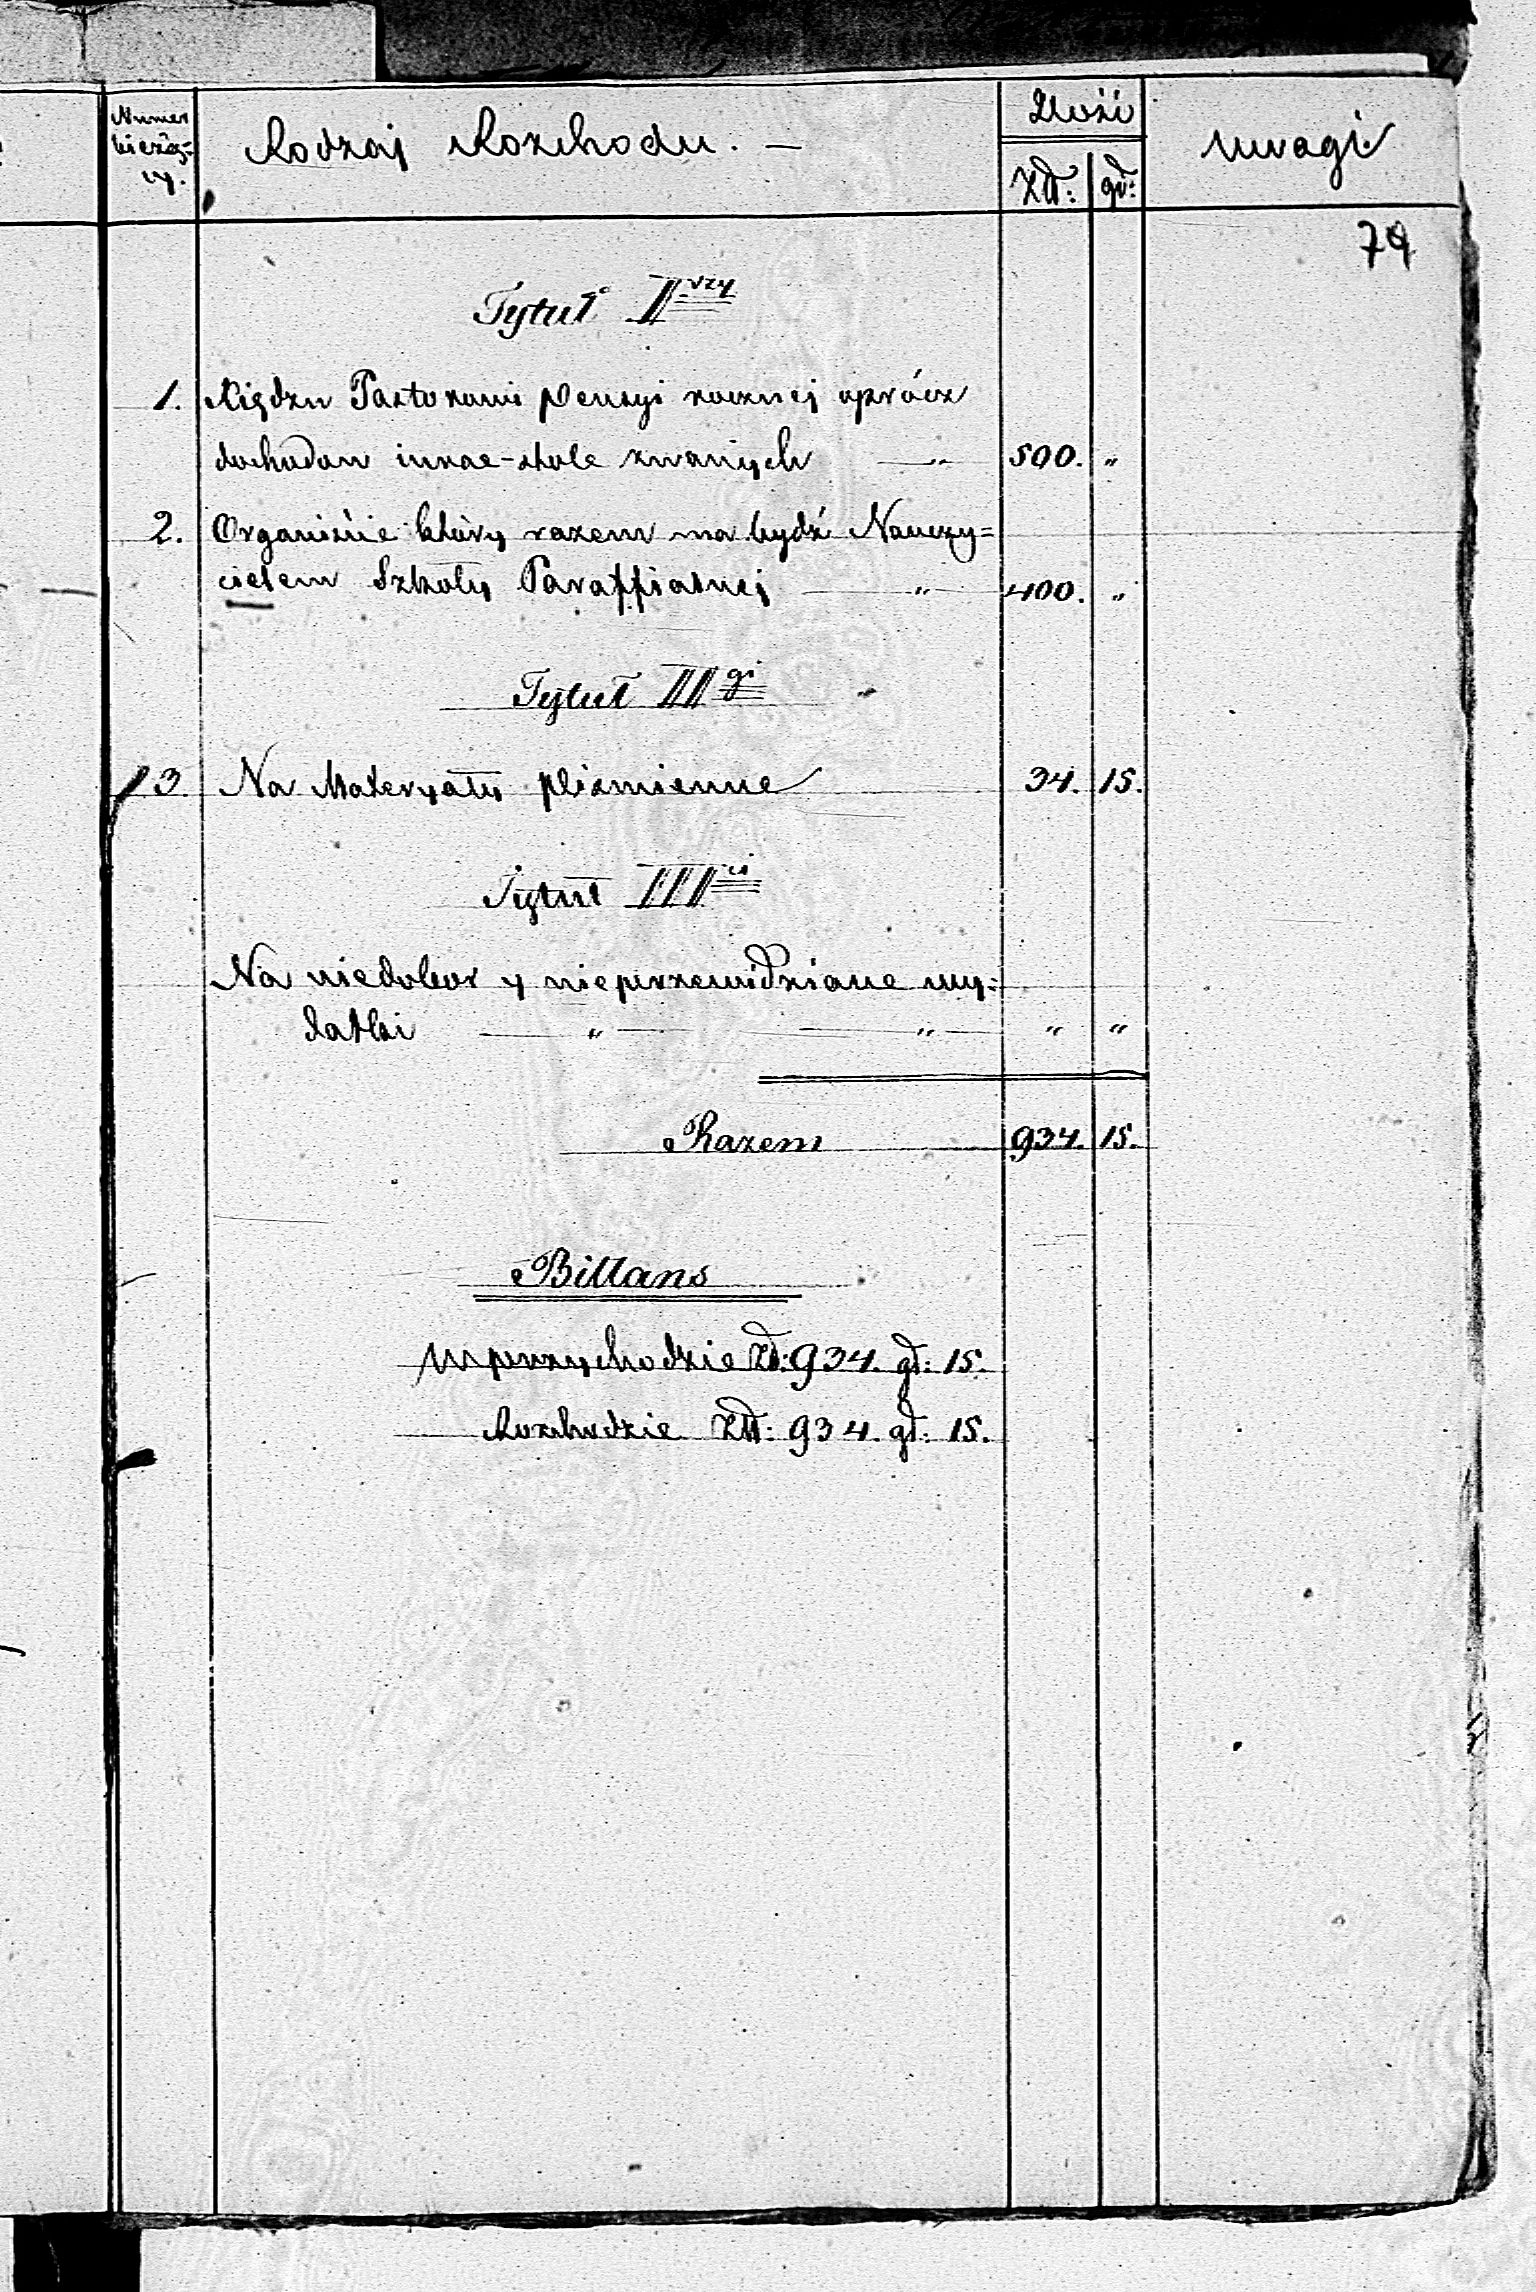 Numer
bieżą-
cy.
Rodzaj Rozchodu. —
Ilość
Złł: gr:
Uwagi
79
Tytuł I.wszy
1. Xiędzu Pastorowi pensyi rocznej oprócz
dochodow iurae-stole zwanych — „ 500. „
2. Organiście który razem ma bydź Nauczy=
cielem Szkoły Paraffialnej — „ — 400. „
Tytuł II gi
3. Na Materyały piśmienne 34. 15.
Tytuł III ci
Na niedobor y nieprzewidziane wy=
datki — „ — — „ — „ „
Razem 934. 15.
Billans
W przychodzie Zł: 934. gr: 15.
Rozchodzie Złł: 934. gr: 15.